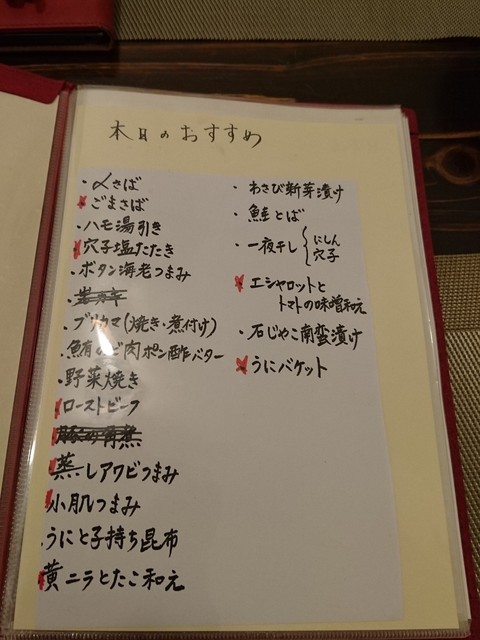 本日のおすすめ
・〆さば
ごまさば
・ハモ湯引き
穴子塩たたき
・ボタン海老つまみ
・ブリカマ(焼き・煮付け)
・鮪のど肉ポン酢バター
・野菜焼き
ローストビーフ
豚の角煮
蒸しアワビつまみ
小肌つまみ
・うにと子持ち昆布
黄ニラとたこ和え
・わさび新芽漬け
・鮭とば
・一夜干し{にしん
穴子
エシャロットと
トマトの味噌和え
・石じゃこ南蛮漬け
うにバケット